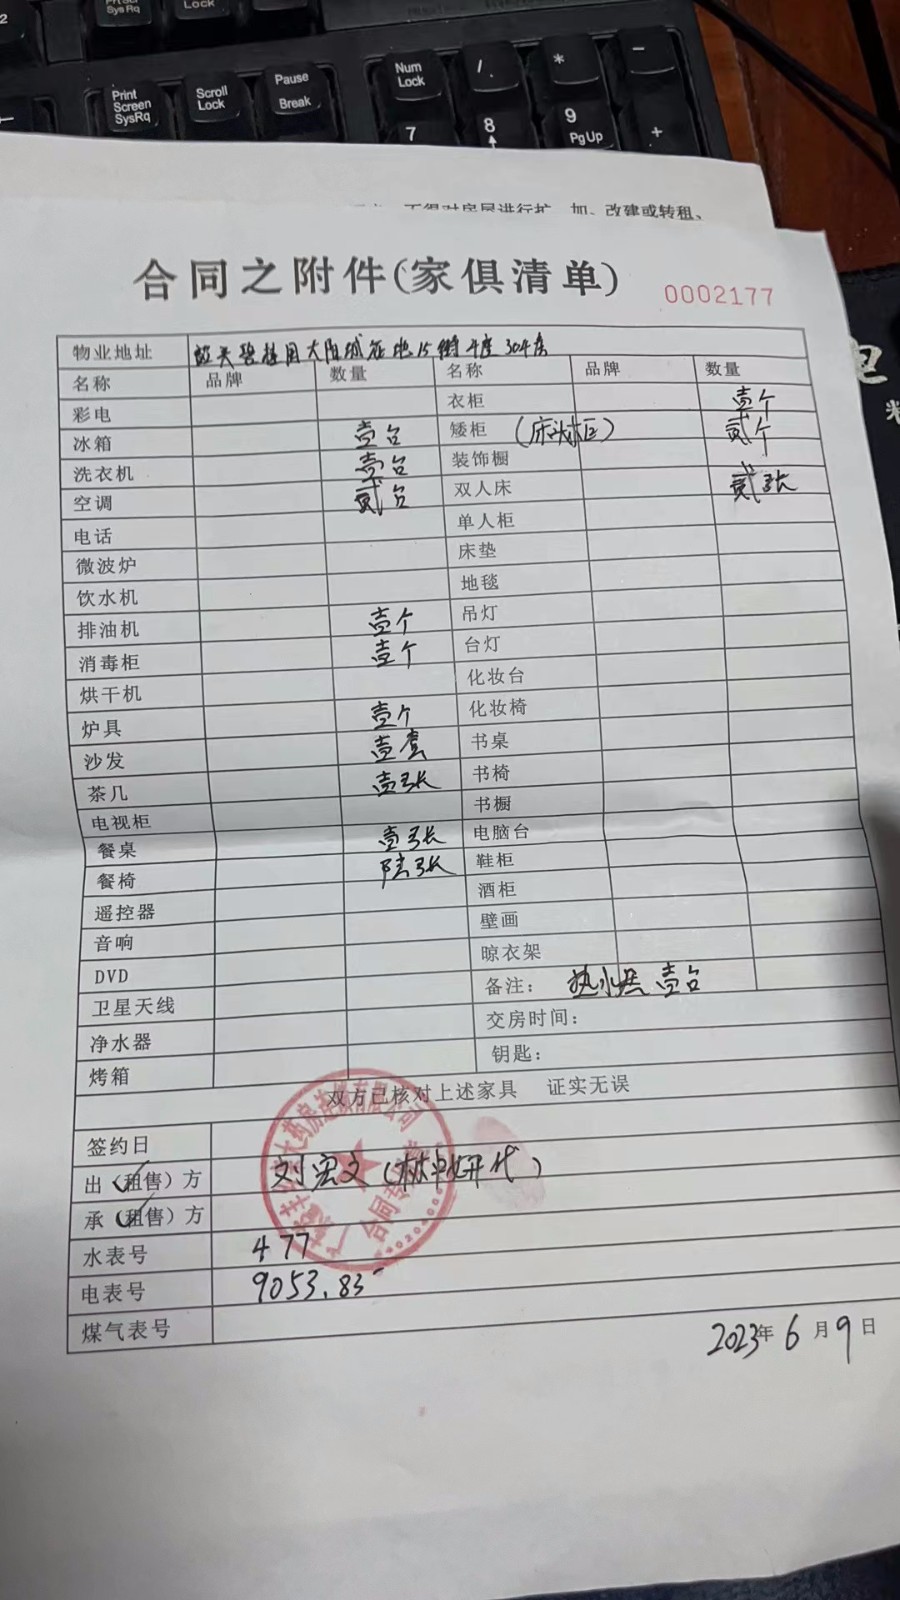 Print Screen SysRq
Scroll Lock
Pause Break
Num Lock
/
*
-
7
8
9 PgUp
+
不得对房屋进行扩、加、改建或转租、
合同之附件(家俱清单)
0002177
物业地址 大阳城 15街4座304房
名称 品牌 数量 名称 品牌 数量
彩电 衣柜 壹个
冰箱 壹台 矮柜 (床头柜) 贰个
洗衣机 壹台 装饰橱
空调 贰台 双人床 贰张
电话 单人柜
微波炉 床垫
饮水机 地毯
排油机 壹个 吊灯
消毒柜 壹个 台灯
烘干机 化妆台
炉具 壹个 化妆椅
沙发 壹套 书桌
茶几 壹张 书椅
电视柜 书橱
餐桌 壹张 电脑台
餐椅 陆张 鞋柜
遥控器 酒柜
音响 壁画
DVD 晾衣架
卫星天线 备注： 热水器 壹台
净水器 交房时间：
烤箱 钥匙：
双方已核对上述家具 证实无误
签约日
出（租售）方 刘宏文(林 妍代)
承（租售）方
水表号 477
电表号 9053.83
煤气表号
2023年6月9日
大药房连锁有限公司
合同专用章